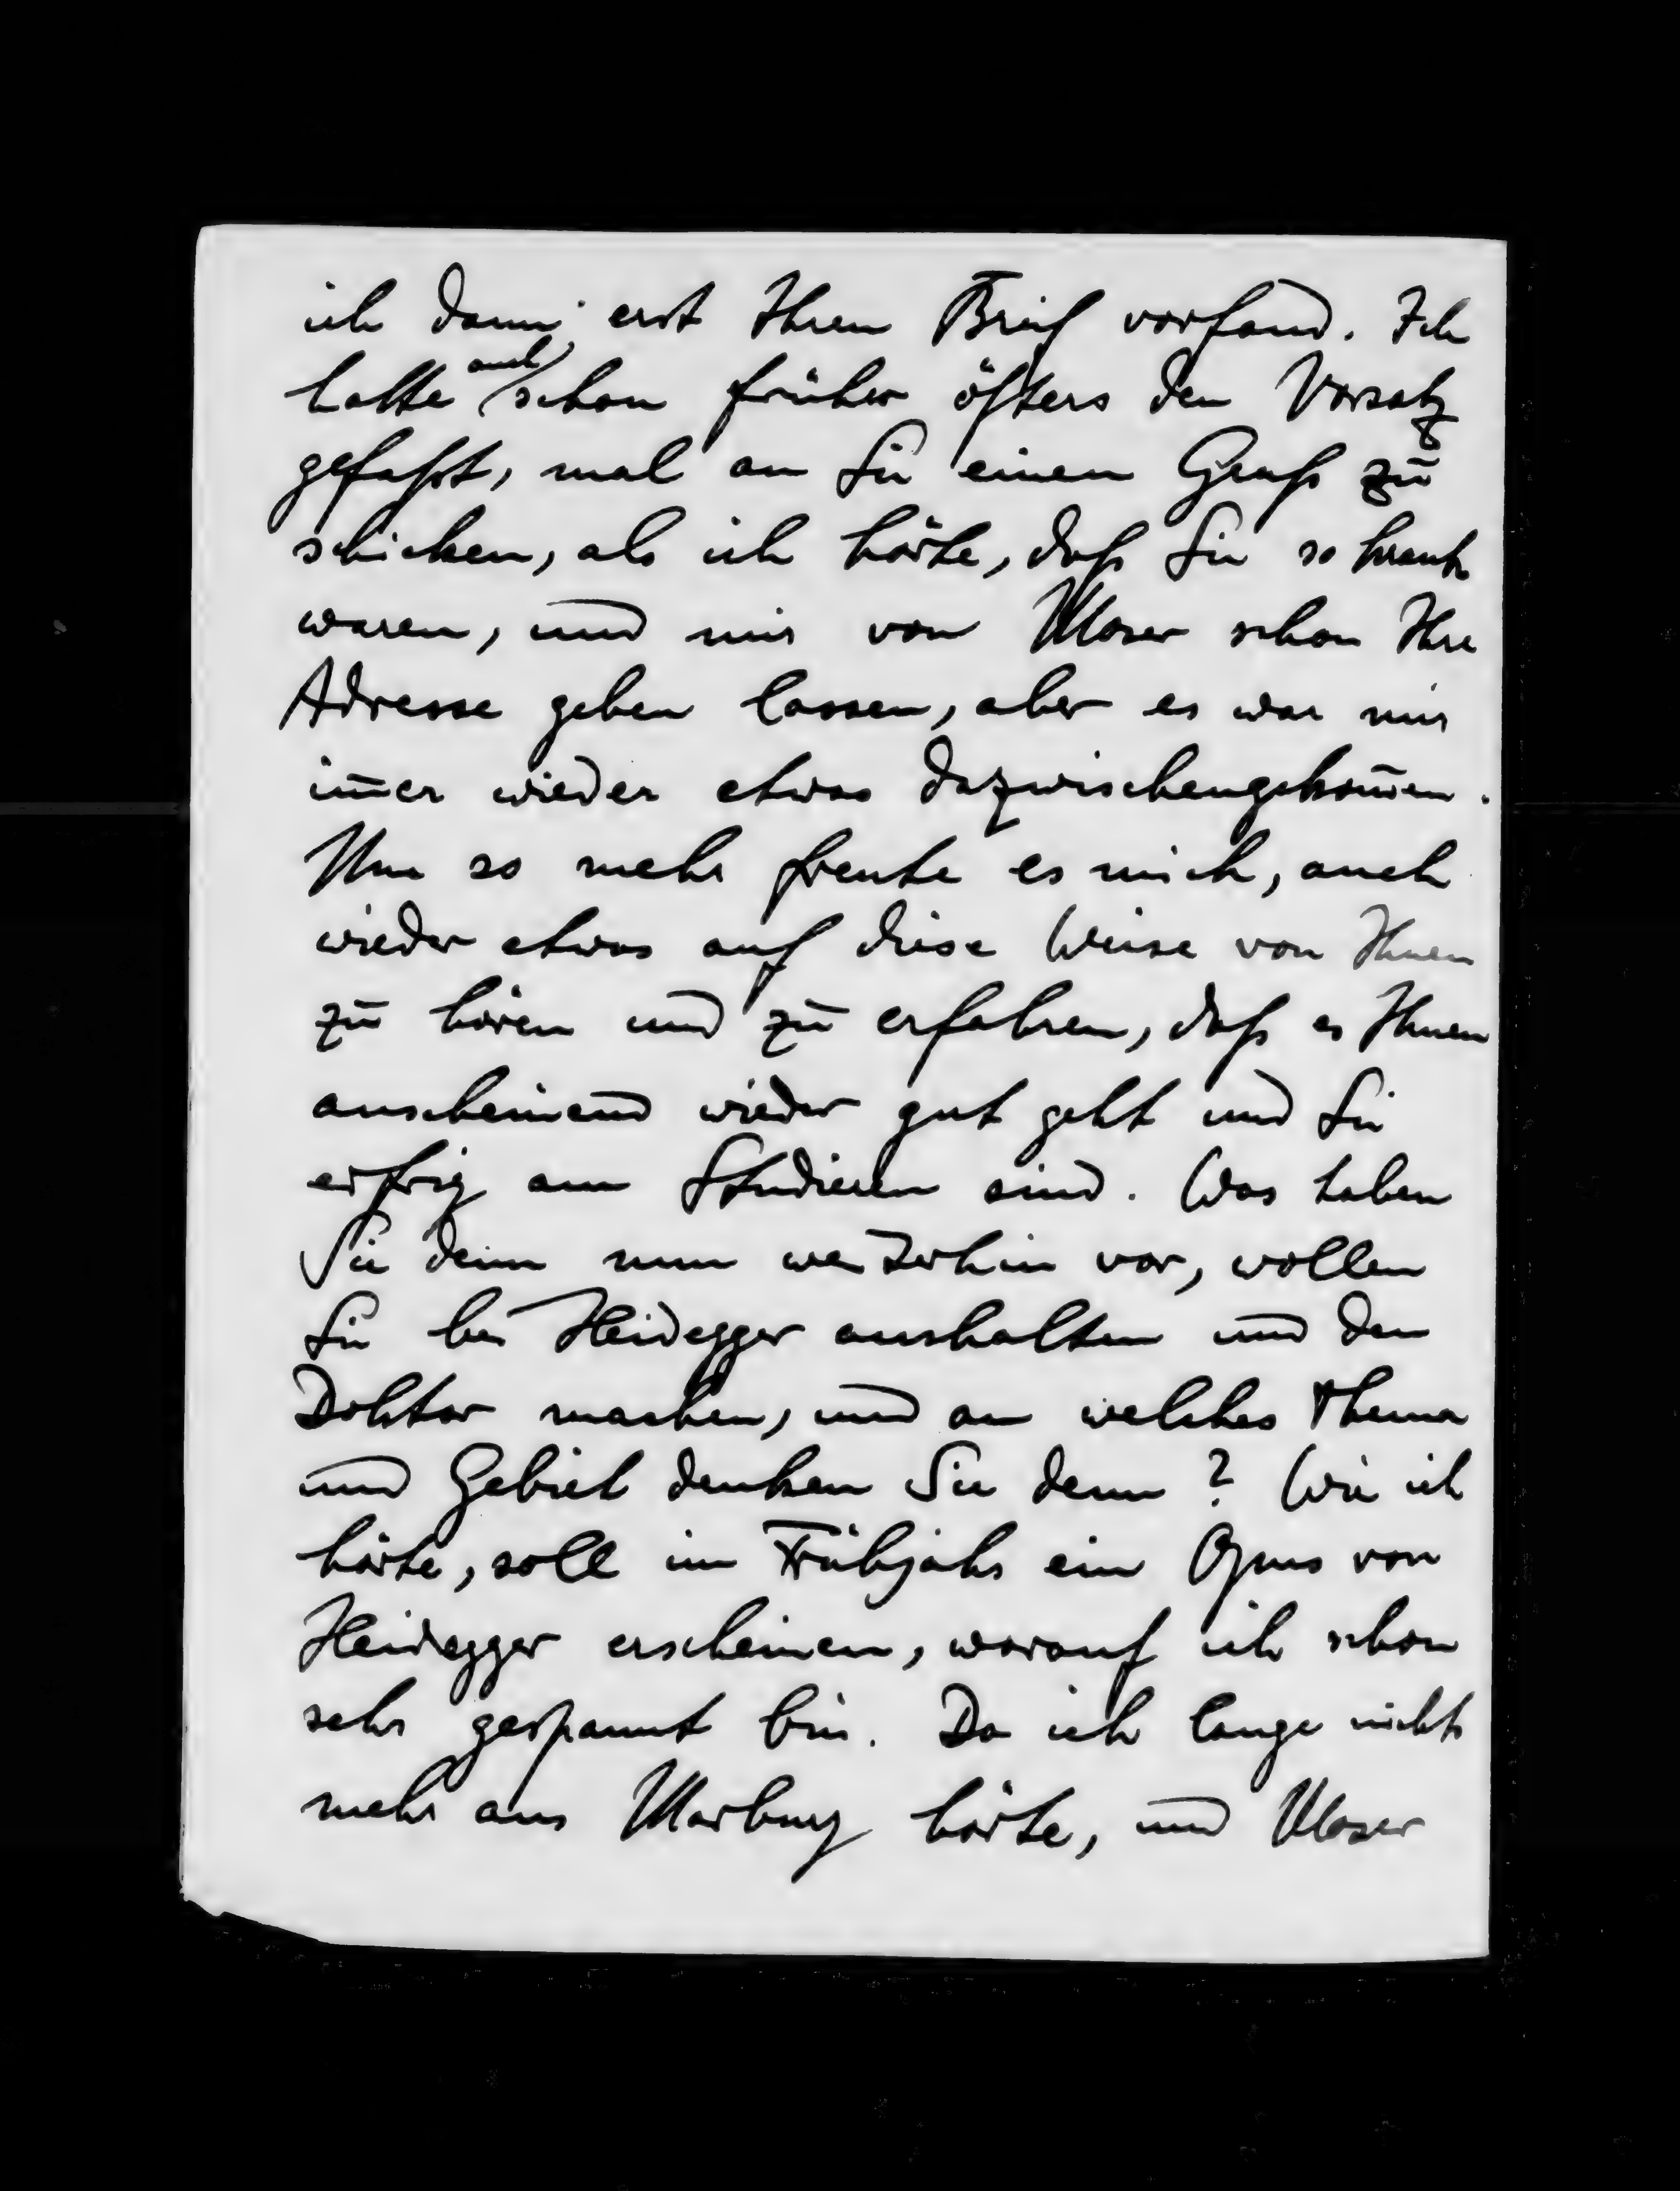 ich dann erst Ihren Brief vorfand. Ich
hatte auch schon früher öfters den Vorsatz
gefaßt, mal an Sie einen Gruß zu
schicken, als ich hörte, daß Sie so krank
waren, und mir von Moser schon Ihre
Adresse geben lassen, aber es war mir
im̅er wieder etwas dazwischengekom̅en.
Um so mehr freute es mich, auch
wieder etwas auf diese Weise von Ihnen
zu hören und zu erfahren, daß es Ihnen
anscheinend wieder gut geht und Sie
eifrig am Studieren sind. Was haben
Sie denn nun weiterhin vor, wollen
Sie bei Heidegger aushalten und den
Doktor machen, und an welches Thema
und Gebiet denken Sie denn? Wie ich
hörte, soll im Frühjahr ein Opus von
Heidegger erscheinen, worauf ich schon
sehr gespannt bin. Da ich lange nichts
mehr aus Marburg hörte, und Moser